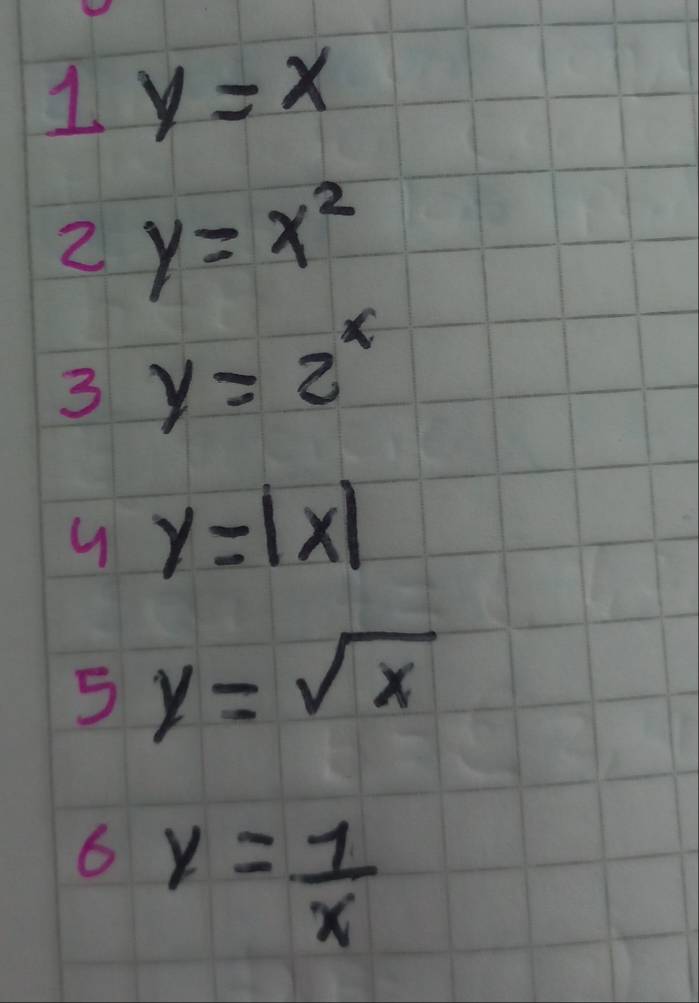 1 y = x
2 y = x²
3 y = 2ˣ
4 y = |x|
5 y = √x
6 y = 1/x